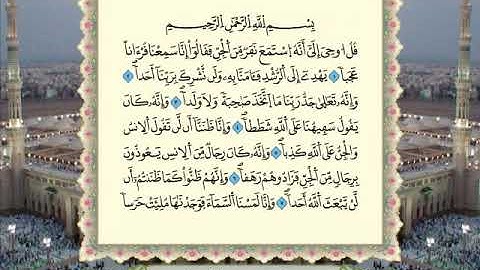 بِسْمِ اللَّهِ الرَّحْمَٰنِ الرَّحِيمِ
قُلُ اوحِيَ إِلَيَّ أَنَّهُ اُسْتَمَعَ نَفَرٌ مِّنَ اَلْجِنِّ فَقَالُوٓاْ إِنَّا سَمِعْنَا قُرْءَاناً
عَجَباً ١ يَهْدِےٓ إِلَى اَلرُّشْدِ فَـَٔامَنَّا بِهِۦ وَلَن نُّشْرِكَ بِرَبِّنَآ أَحَداً ٢
وَإِنَّهُۥ تَعَٰلَىٰ جَدُّ رَبِّنَا مَا اَتَّخَذَ صَٰحِبَةً وَلَا وَلَداً ٣ وَإِنَّهُۥ كَانَ
يَقُولُ سَفِيهُنَا عَلَى اَللَّهِ شَطَطاً ٤ وَإِنَّا ظَنَنَّآ أَن لَّن تَقُولَ اَلِانسُ
وَالْجِنُّ عَلَى اَللَّهِ كَذِباً ٥ وَإِنَّهُۥ كَانَ رِجَالٌ مِّنَ اَلِانسِ يَعُوذُونَ
بِرِجَالٍ مِّنَ اَلْجِنِّ فَزَادُوهُمْ رَهَقاً ٦ وَإِنَّهُمْ ظَنُّواْ كَمَا ظَنَنتُمُۥٓ أَن
لَّنْ يَّبْعَثَ اَللَّهُ أَحَداً ٧ وَإِنَّا لَمَسْنَا اَلسَّمَآءَ فَوَجَدْنَٰهَا مُلِئَتْ حَرَساً